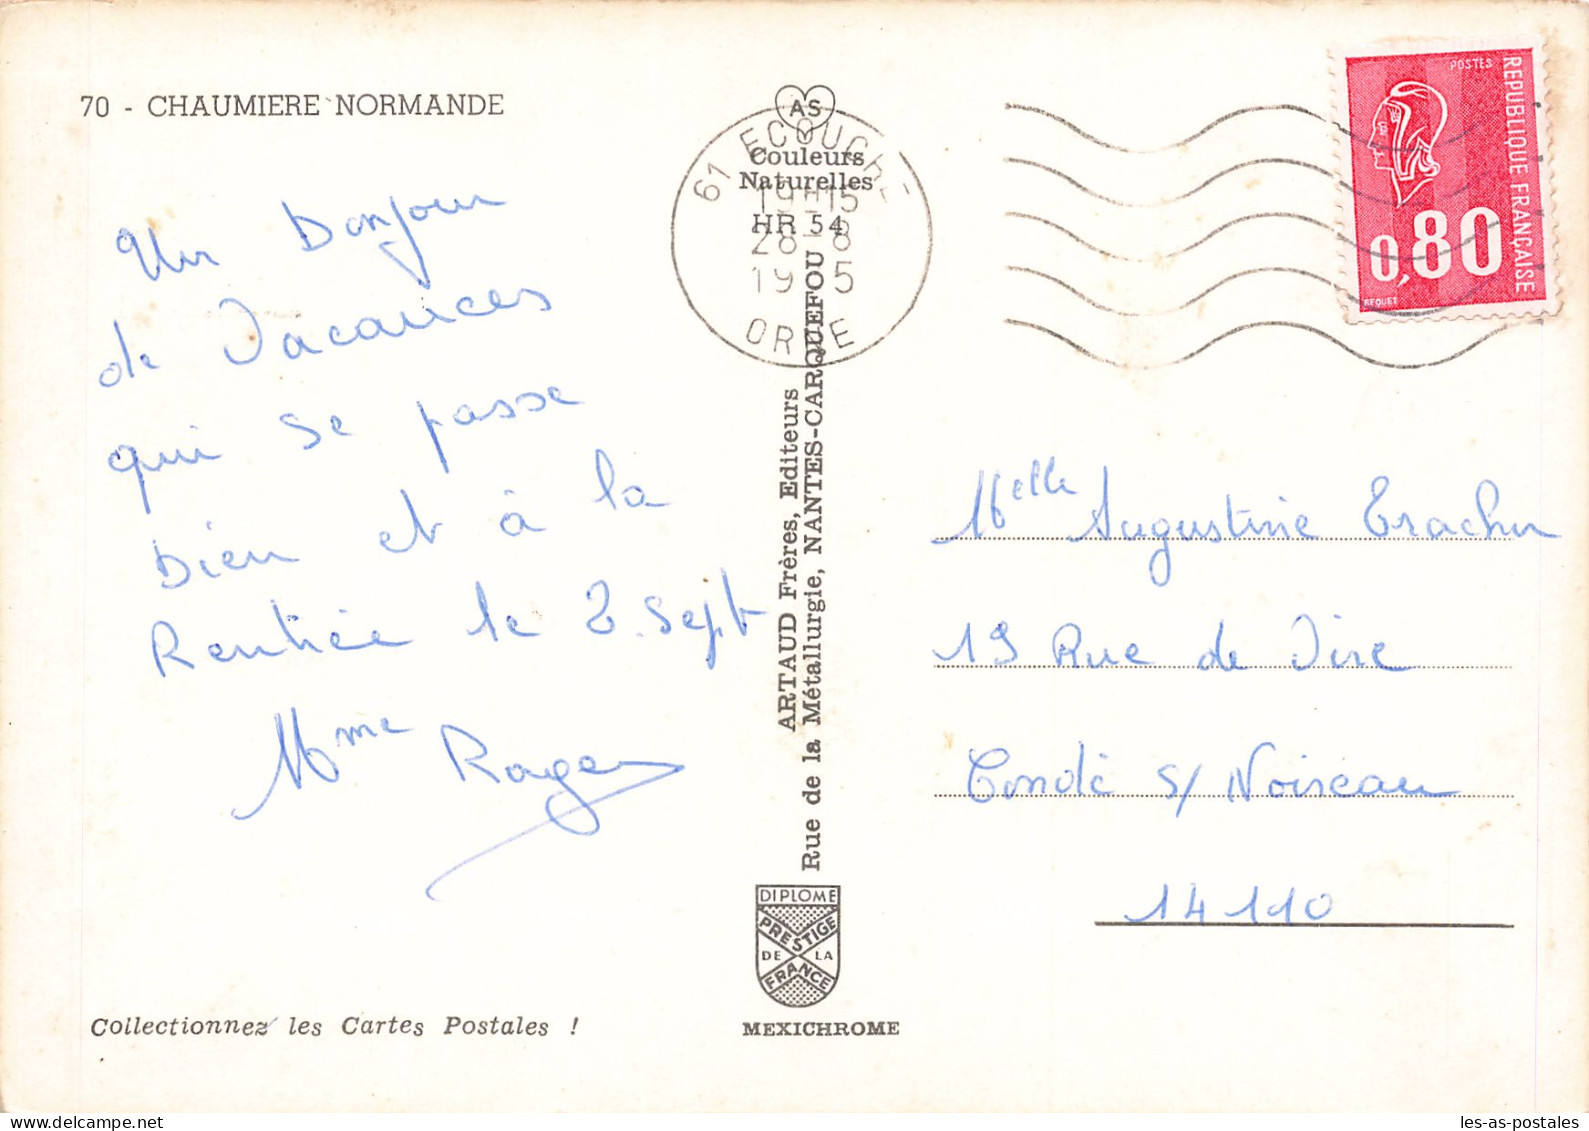 70 - CHAUMIERE NORMANDE
Un Bonjour
de Vacances
qui se passe
bien et à la
Rentrée le 2. Sept
Mme Roger
Collectionnez les Cartes Postales !
AS
Couleurs
Naturelles
HR 54
61 ECOUCHE
19H15
28-8
19 5
ORNE
ARTAUD Frères, Editeurs
Rue de la Métallurgie, NANTES-CARQUEFOU
DIPLOME
PRESTIGE
DE LA
FRANCE
MEXICHROME
POSTES
REPUBLIQUE FRANÇAISE
0,80
BEQUET
Melle Augustine
19 Rue de Vire
Condé s/ Noireau
14110
les-as-postales